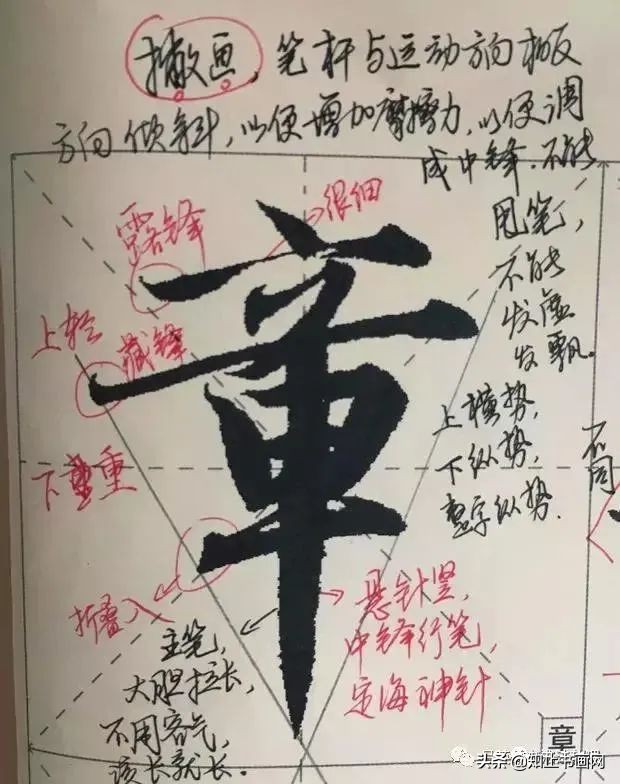 撇画,笔杆与运动方向相反
方向倾斜,以便增加摩擦力,以便调
成中锋.不能
甩笔,
不能
发虚
发飘.
露锋
很细
章
上轻
藏锋
上横势,
下纵势,
整字纵势.
不同
下重重
折叠入
主笔,
大胆拉长,
不用客气,
该长就长.
悬针竖,
中锋行笔,
定海神针.
章
头条@知正书画网